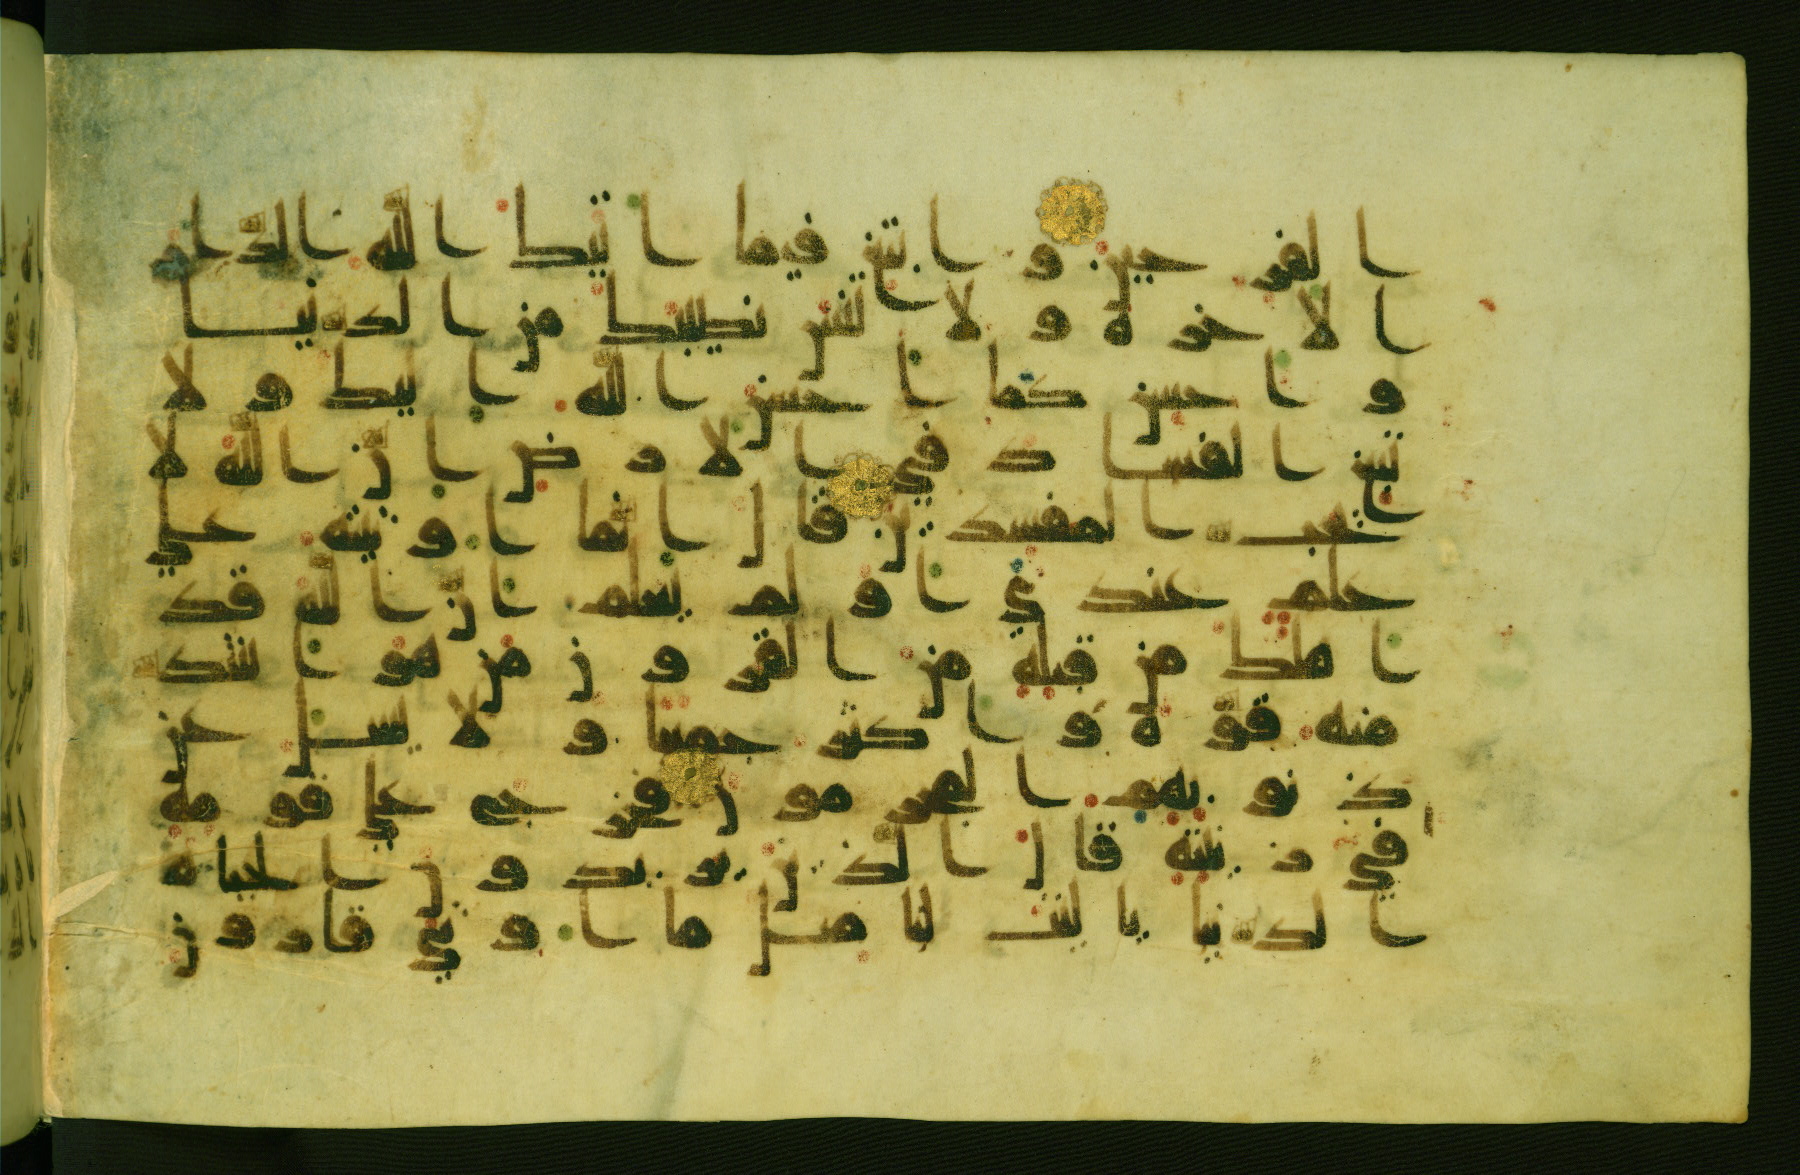 الفرحين وابتغ فيما اتيك الله الدار
الاخرة ولا تنس نصيبك من الدنيا
واحسن كما احسن الله اليك ولا
تبغ الفساد في الارض ان الله لا
يحب المفسدين قال انما اوتيته على
علم عندي اولم يعلم ان الله قد
اهلك من قبله من القرون من هو اشد
منه قوة واكثر جمعا ولا يسل عن
ذنوبهم المجرمون فخرج على قومه
في زينته قال الذين يريدون الحياة
الدنيا يا ليت لنا مثل ما اوتي قارون